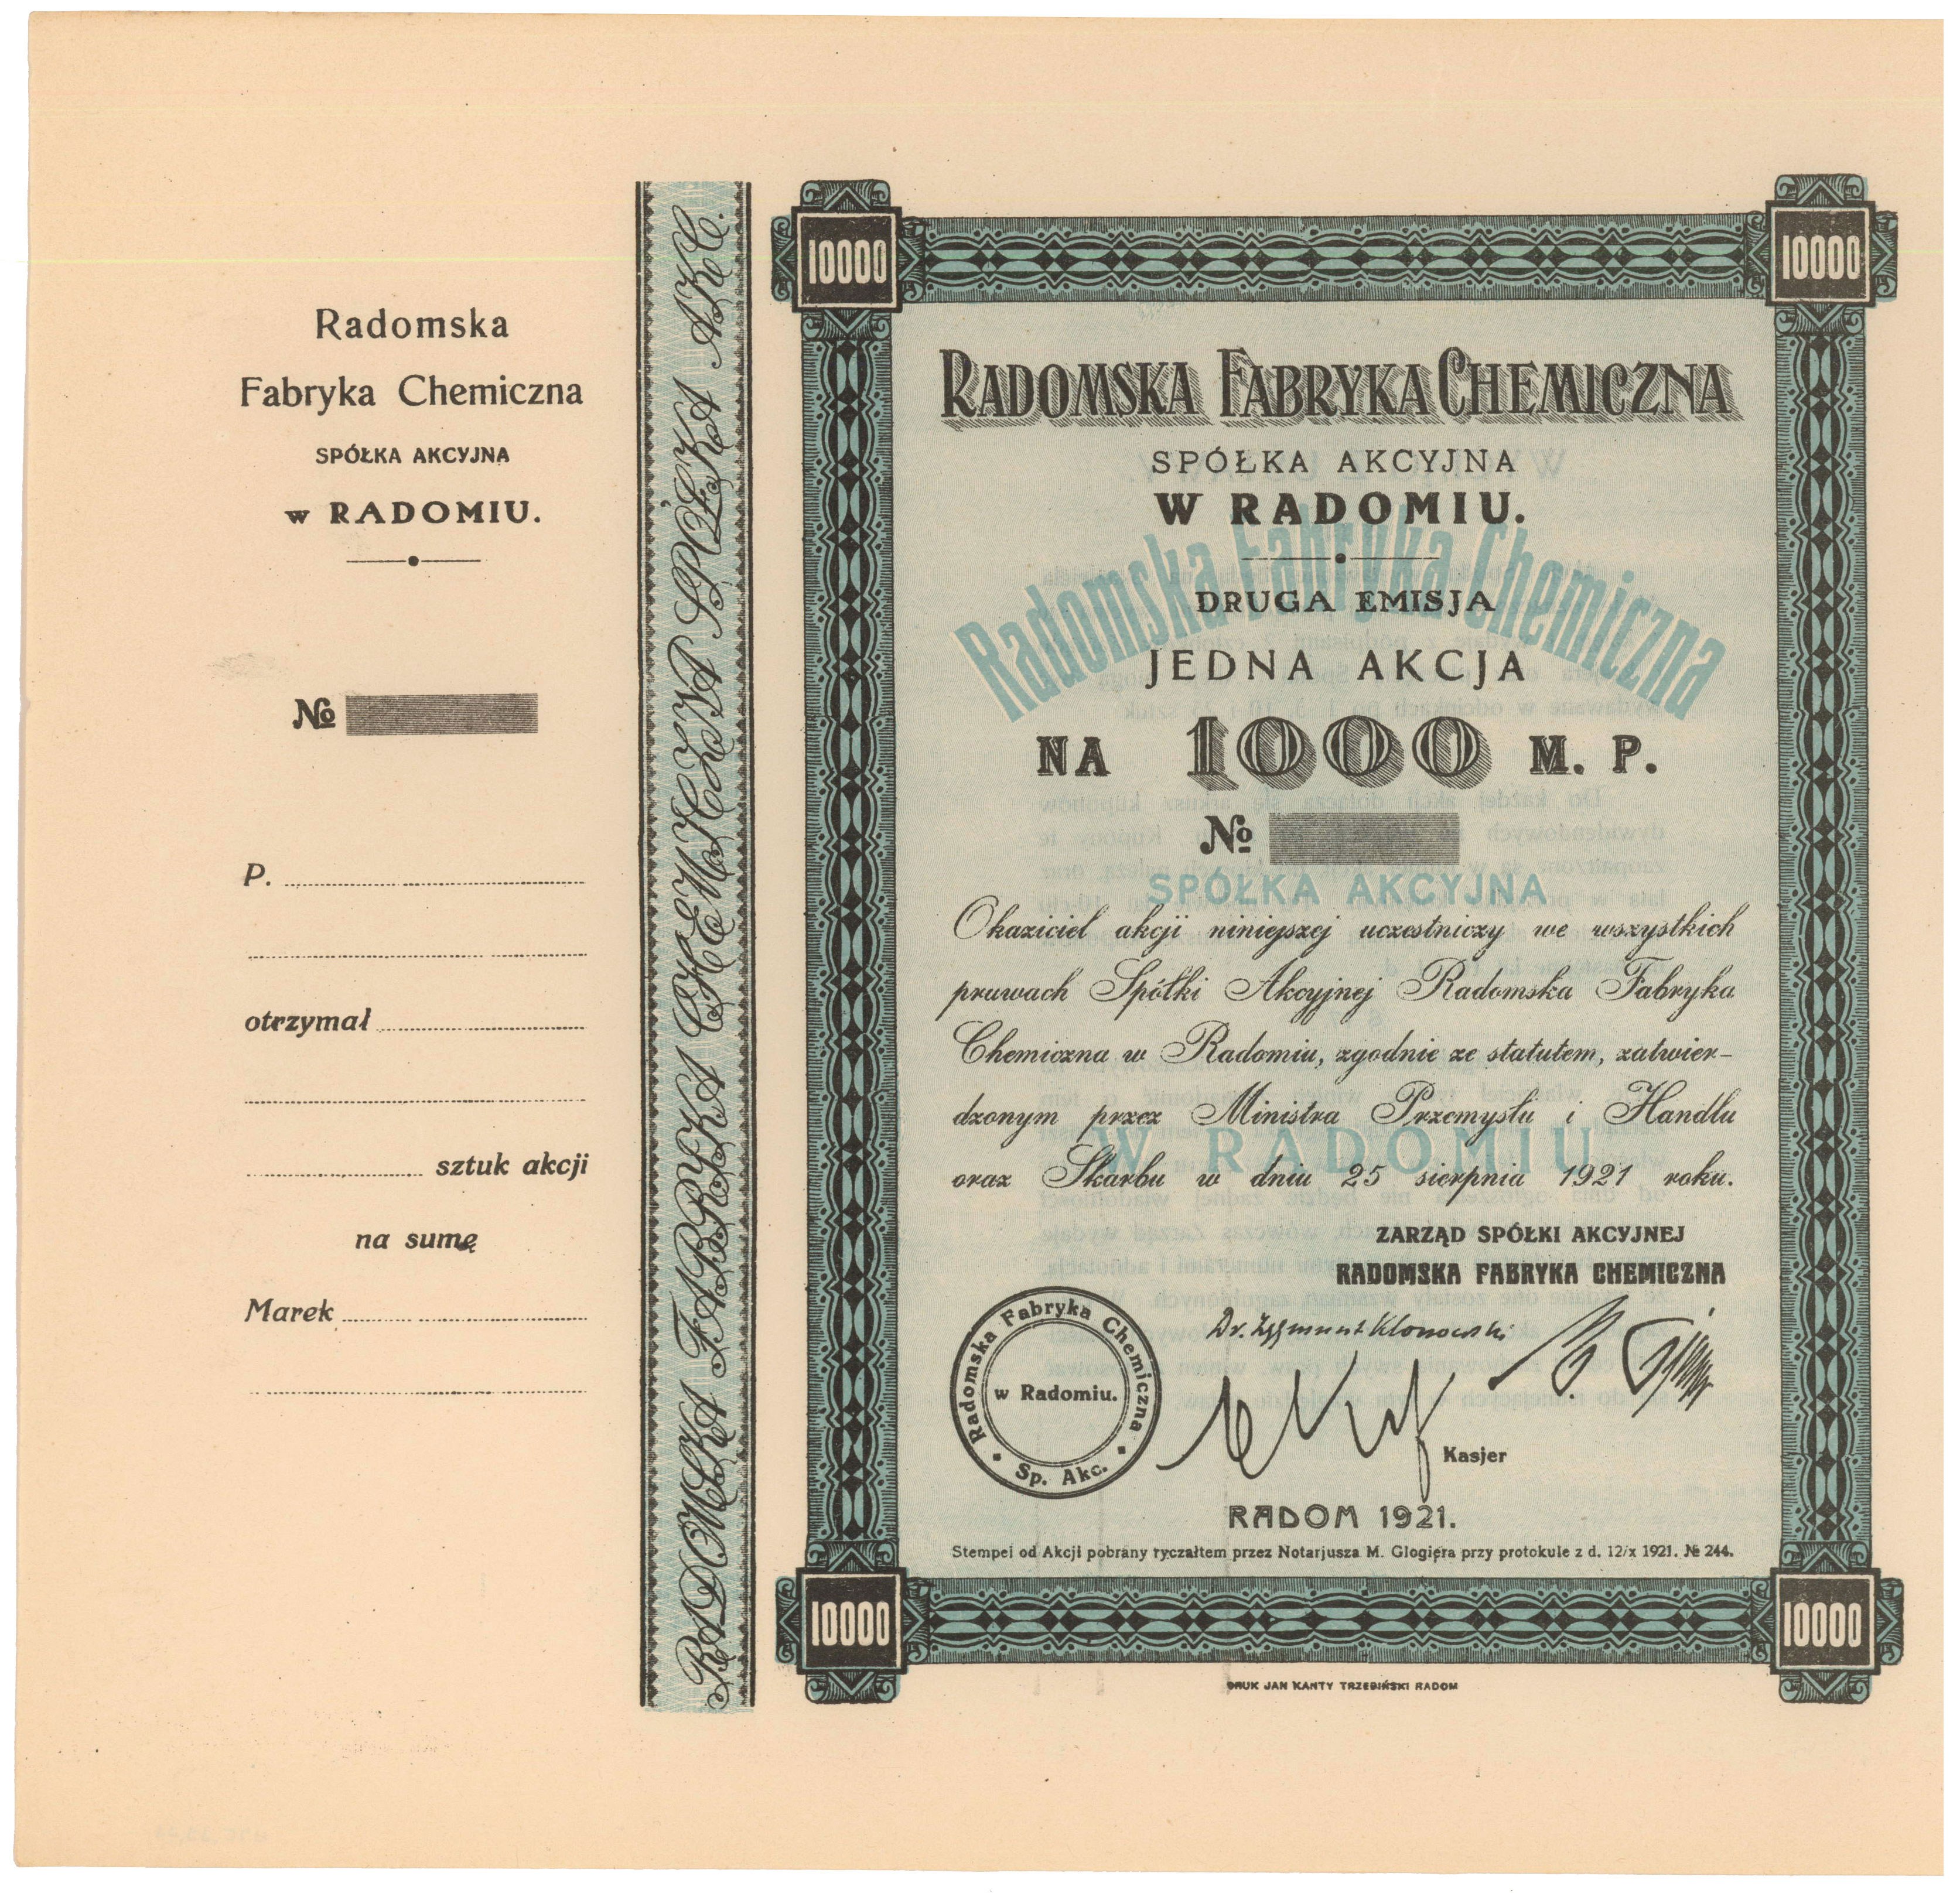 Radomska
Fabryka Chemiczna
SPÓŁKA AKCYJNA
w RADOMIU.
№
P.
otrzymał
sztuk akcji
na sumę
Marek
RADOMSKA FABRYKA CHEMICZNA SPÓŁKA AKC.
10000
10000
RADOMSKA FABRYKA CHEMICZNA
SPÓŁKA AKCYJNA
W RADOMIU.
Radomska Fabryka Chemiczna
DRUGA EMISJA
JEDNA AKCJA
NA 1000 M. P.
№
SPÓŁKA AKCYJNA
Okaziciel akcji niniejszej uczestniczy we wszystkich
prawach Spółki Akcyjnej Radomska Fabryka
Chemiczna w Radomiu, zgodnie ze statutem, zatwier-
dzonym przez Ministra Przemysłu i Handlu
W RADOMIU
oraz Skarbu w dniu 25 sierpnia 1921 roku.
ZARZĄD SPÓŁKI AKCYJNEJ
RADOMSKA FABRYKA CHEMICZNA
Radomska Fabryka Chemiczna
w Radomiu.
Sp. Akc.
Dr. Zygmunt Klonowski
Kasjer
RADOM 1921.
Stempel od Akcji pobrany ryczałtem przez Notarjusza M. Glogiera przy protokule z d. 12/x 1921. № 244.
10000
10000
DRUK JAN KANTY TRZEBIŃSKI RADOM